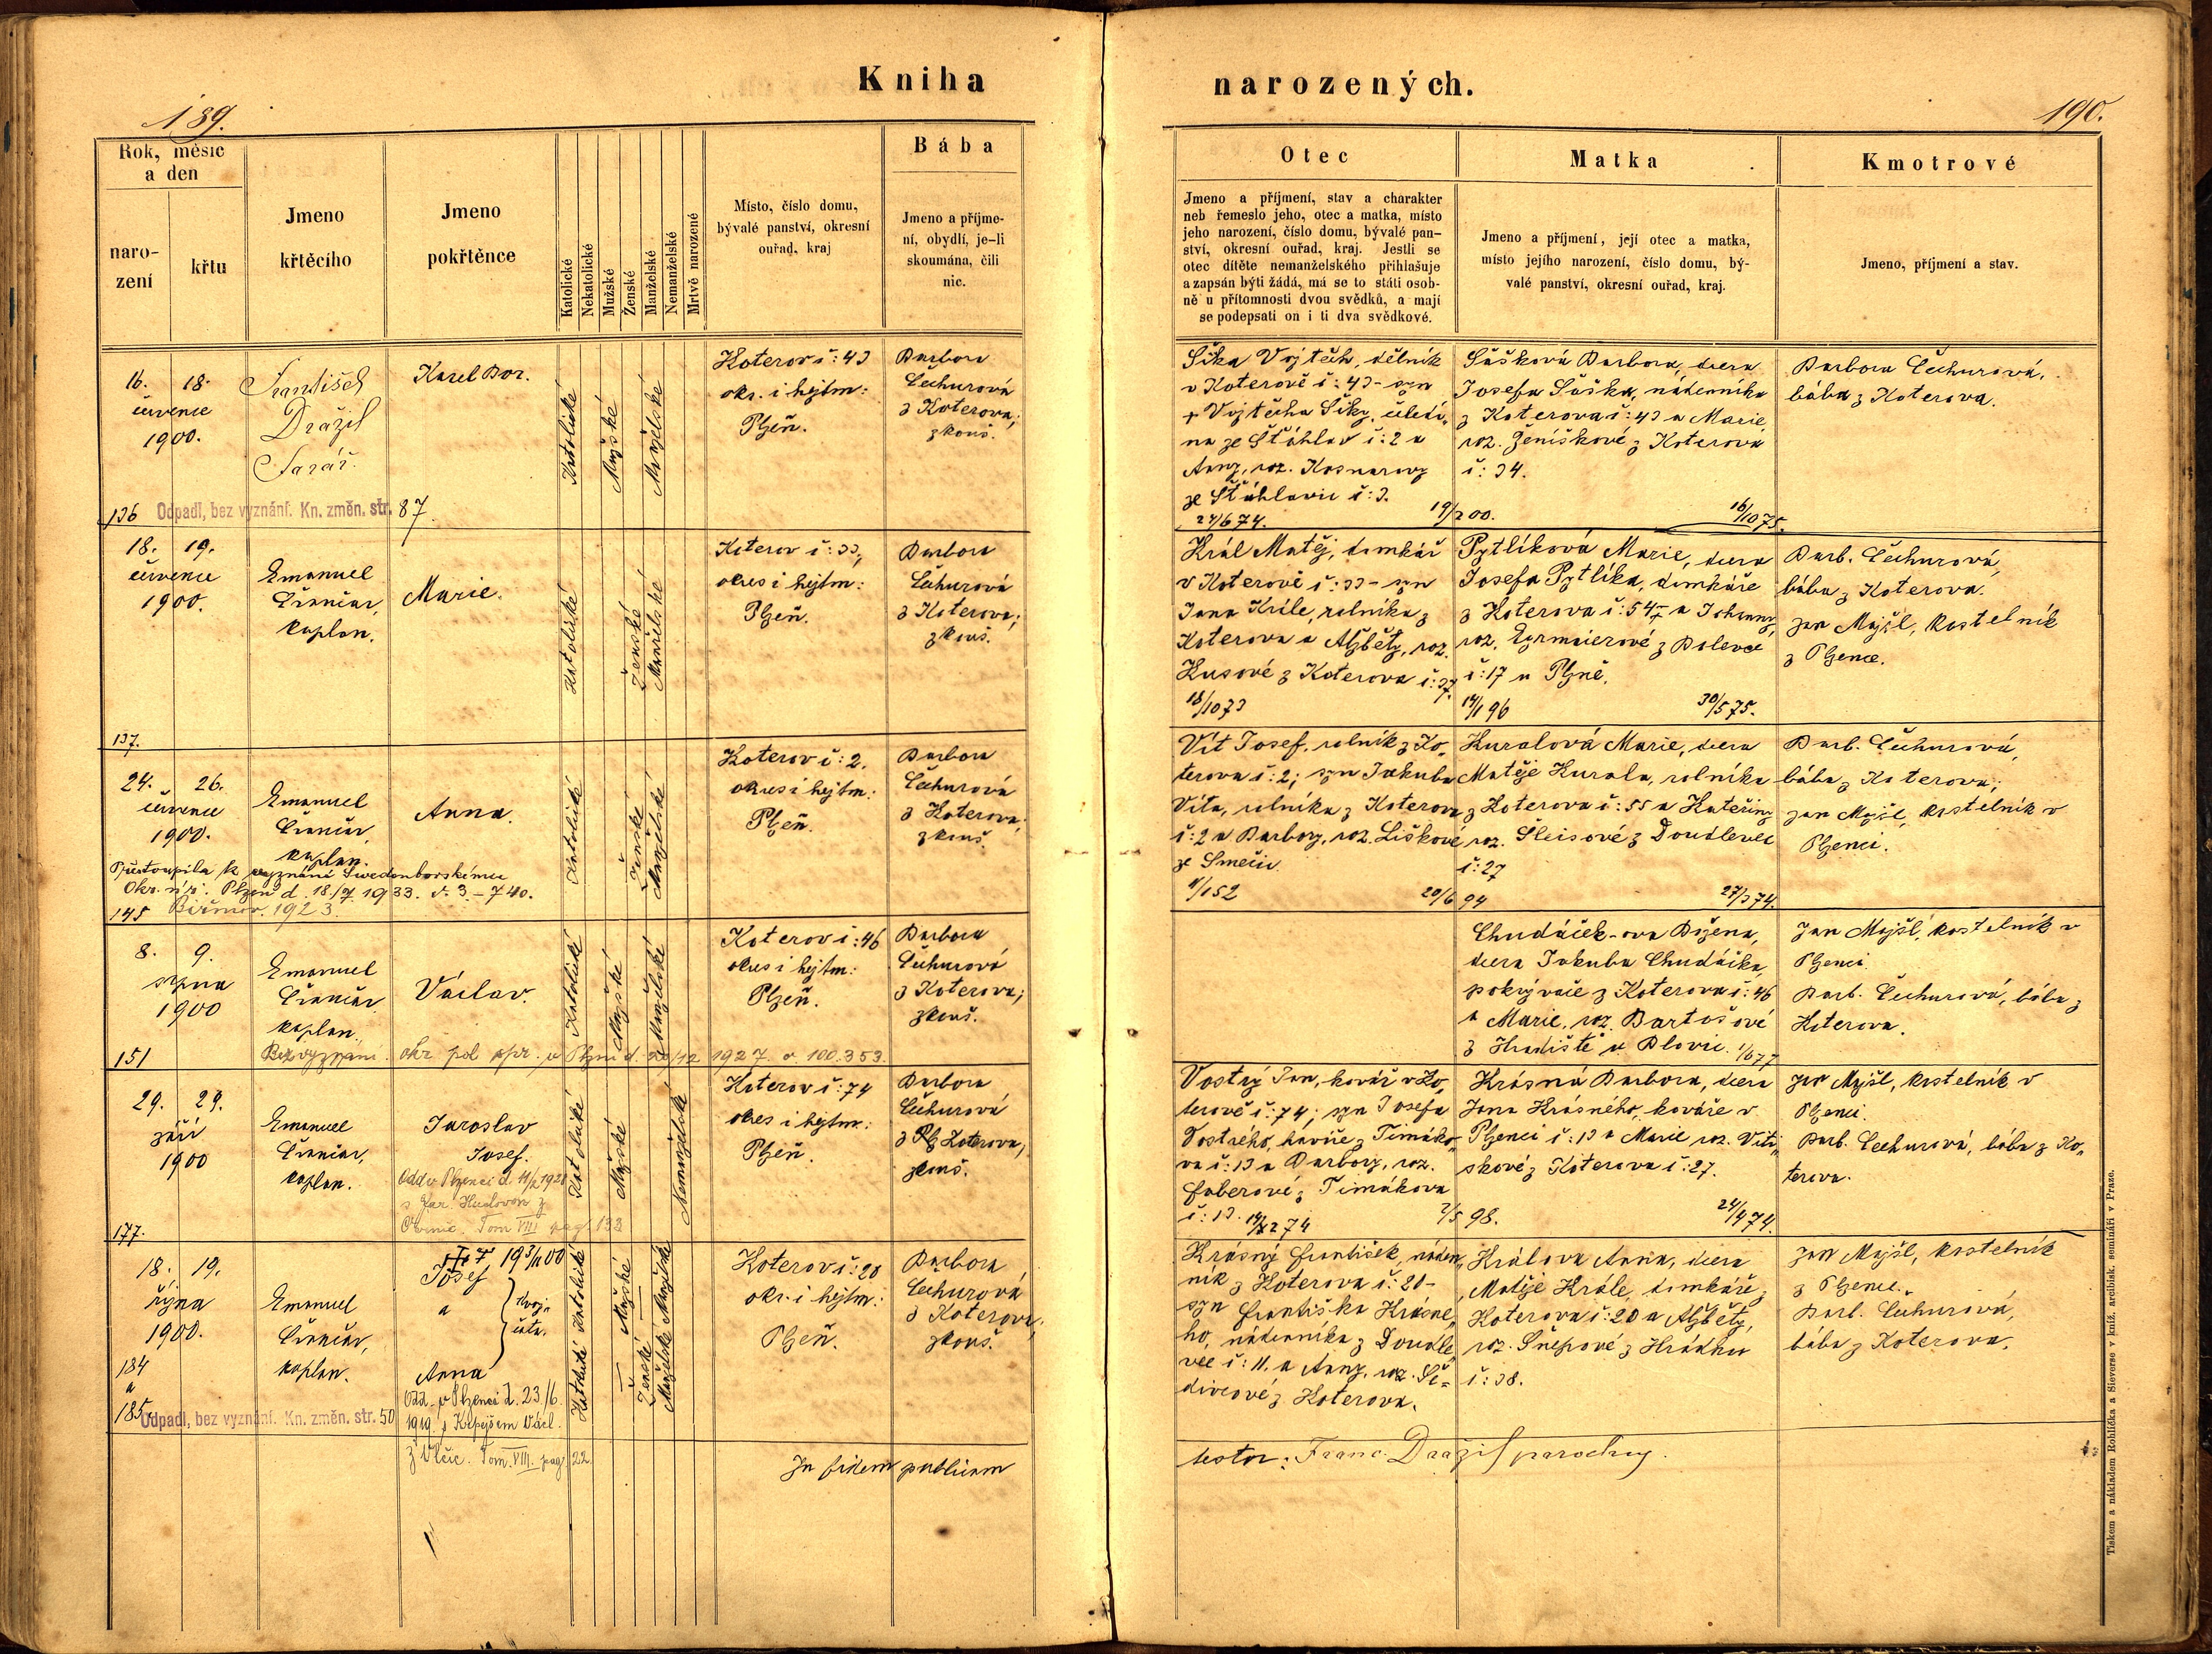 Kniha narozených.
189.
190.
Rok, měsíc
a den
naro-
zení
křtu
Jmeno
křtěcího
Jmeno
pokřtěnce
Katolické
Nekatolické
Mužské
Ženské
Manželské
Nemanželské
Mrtvě narozené
Místo, číslo domu,
bývalé panství, okresní
ouřad, kraj
Bába
Jmeno a příjme-
ní, obydlí, je-li
skoumána, čili
nic.
Otec
Jmeno a příjmení, stav a charakter
neb řemeslo jeho, otec a matka, místo
jeho narození, číslo domu, bývalé pan-
ství, okresní ouřad, kraj. Jestli se
otec dítěte nemanželského přihlašuje
a zapsán býti žádá, má se to státi osob-
ně u přítomnosti dvou svědků, a mají
se podepsati on i ti dva svědkové.
Matka
Jmeno a příjmení, její otec a matka,
místo jejího narození, číslo domu, bý-
valé panství, okresní ouřad, kraj.
Kmotrové
Jmeno, příjmení a stav.
16. 18.
července
1900.
136
František
Dražil
farář.
Karel Bor.
Odpadl, bez vyznání. Kn. změn. str. 87.
Katolické
Mužské
Manželské
Koterov č: 43
okr. i hejtm:
Plzeň.
Barbora
Čechurová
z Koterova;
zkouš.
Šika Vojtěch, dělník
v Koterově č: 43 - syn
+ Vojtěcha Šiky, čeledí„
na ze Šťáhlav č: 2 a
Anny, roz. Kosnarovy
ze Šťáhlavic č: 3.
24/6 74.
19/2 00.
Šašková Barbora, dcera
Josefa Šaška, nádenníka
z Koterova č: 43 a Marie,
roz. Ženíškové z Koterova
č: 34.
16/10 75.
Barbora Čechurová,
bába z Koterova.
18. 19.
července
1900.
137.
Emanuel
Čininčar,
kaplan.
Marie.
Katolické
Ženské
Manželské
Koterov č: 33,
okres i hejtm:
Plzeň.
Barbora
Čechurová
z Koterova;
zkouš.
Král Matěj, domkář
v Koterově č: 33 - syn
Jana Krále, rolníka z
Koterova a Alžběty, roz.
Kusové z Koterova č: 37.
18/10 73
14/1 96
Pytlíková Marie, dcera
Josefa Pytlíka, domkáře
z Koterova č: 54 - a Johanny,
roz. Egrmaierové z Bolevce
č: 17 u Plzně.
30/5 75.
Barb. Čechurová,
bába z Koterova.
Jan Majšl, kostelník
z Plzence.
24. 26.
července
1900.
145
Emanuel
kaplan.
Anna.
Přestoupila k vyznání Swedenborskému
Okr. úř. Plzeň d. 18/7 1933. č. 3 - 740.
Biřmov. 1923.
Katolické
Ženské
Manželské
Koterov č: 2.
okres i hejtm:
Plzeň.
Barbora
Čechurová
z Koterova;
zkouš.
Vít Josef, rolník z Ko„
terova č: 2; syn Jakuba
Víta, rolníka z Koterova
č: 2 a Barbory, roz. Liškové
ze Smečic
1/1 52
20/6 94
Kuralová Marie, dcera
Matěje Kurala, rolníka
z Koterova č: 55 a Kateřiny
roz. Šleisové z Doudlevec
č: 27
27/3 74.
Barb. Čechurová,
bába z Koterova;
Jan Majšl, kostelník v
Plzenci.
8. 9.
srpna
1900
151
Emanuel
kaplan.
Václav.
Bez vyznání. okr. pol. spr. v Plzni d. 20/12 1927 č. 100.353.
Katolické
Mužské
Manželské
Koterov č: 46
okres i hejtm:
Plzeň.
Barbora
Čechurová
z Koterova;
zkouš.
Chudáček-ova Božena,
dcera Jakuba Chudáčka,
pokrývače z Koterova č: 46
a Marie, roz. Bartošové
z Hradiště u Blovic. 1/6 77
Jan Majšl, kostelník v
Plzenci.
Barb. Čechurová, bába z
Koterova.
29. 29.
září
1900
177.
Emanuel
kaplan.
Jaroslav
Josef.
Odd. v Plzenci d. 11/2 1928
Tom VIII pag. 132
Katolické
Mužské
Nemanželské
Koterov č: 74
okres i hejtm:
Plzeň.
Barbora
Čechurová
z Koterova,
zkouš.
Vostrý Jan, kovář v Ko„
terově č: 74; syn Josefa
Vostrého, kováře z Timáko„
va č: 13 a Barbory, roz.
Faberové z Timákova
č: 13. 14/12 74
2/5 98.
Krásná Barbora, dcera
Jana Krásného, kováře v
Plzenci č: 13 a Marie roz. Viti„
skové z Koterova č: 27.
24/4 74.
Jan Majšl, kostelník v
Plzenci.
Barb. Čechurová, bába z Ko„
terova.
18. 19.
října
1900.
184
a
185.
Emanuel
kaplan.
Josef
a
Anna
dvoj„
čata.
Odd. v Plzenci d. 23/6
1919 s Klepejšem Václ.
z Vlčic. Tom. VIII. pag. 22.
Odpadl, bez vyznání. Kn. změn. str. 50
Katolické Katolické
Mužské
Ženské
Manželské Manželské
Koterov č: 20
okr. i hejtm:
Plzeň.
Barbora
Čechurová
z Koterova,
zkouš.
Krásný František, náden„
ník z Koterova č: 20 -
syn Františka Krásné„
ho, nádenníka z Doudle„
vec č: 11. a Anny, roz. Še=
divcové z Koterova.
Králova Anna, dcera
Matěje Krále, domkáře z
Koterova č: 20 a Alžběty,
roz. Šnepové z Hrádku
č: 38.
Jan Majšl, kostelník
z Plzence.
Barb. Čechurová,
bába z Koterova.
In fidem publicam
testor: Franc. Dražil parochus.
Tiskem a nákladem Rohlíčka a Sieverse v kníž. arcibisk. semináři v Praze.